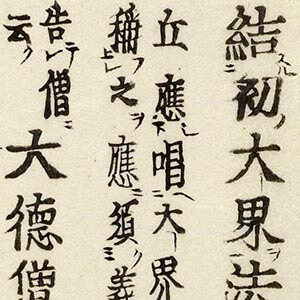 結初大界法
丘應唱大界
稱之應須義
告僧
云
大德僧